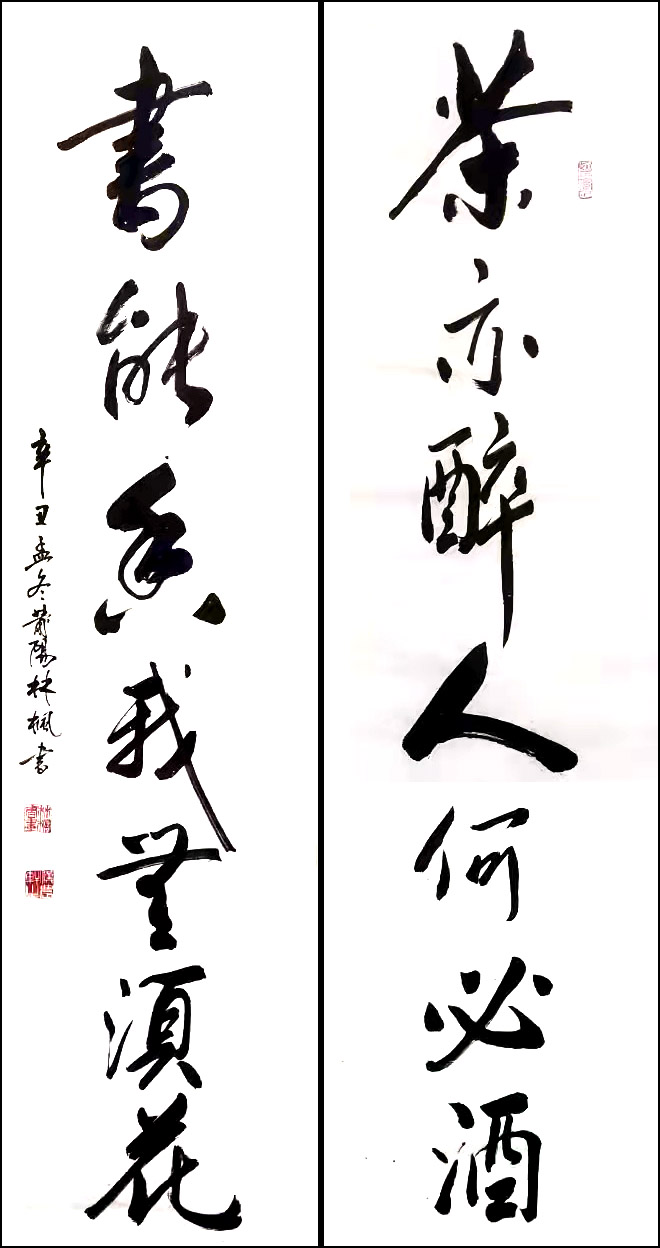 茶亦醉人何必酒
書能香我無須花
辛丑孟冬莆陽林楓書